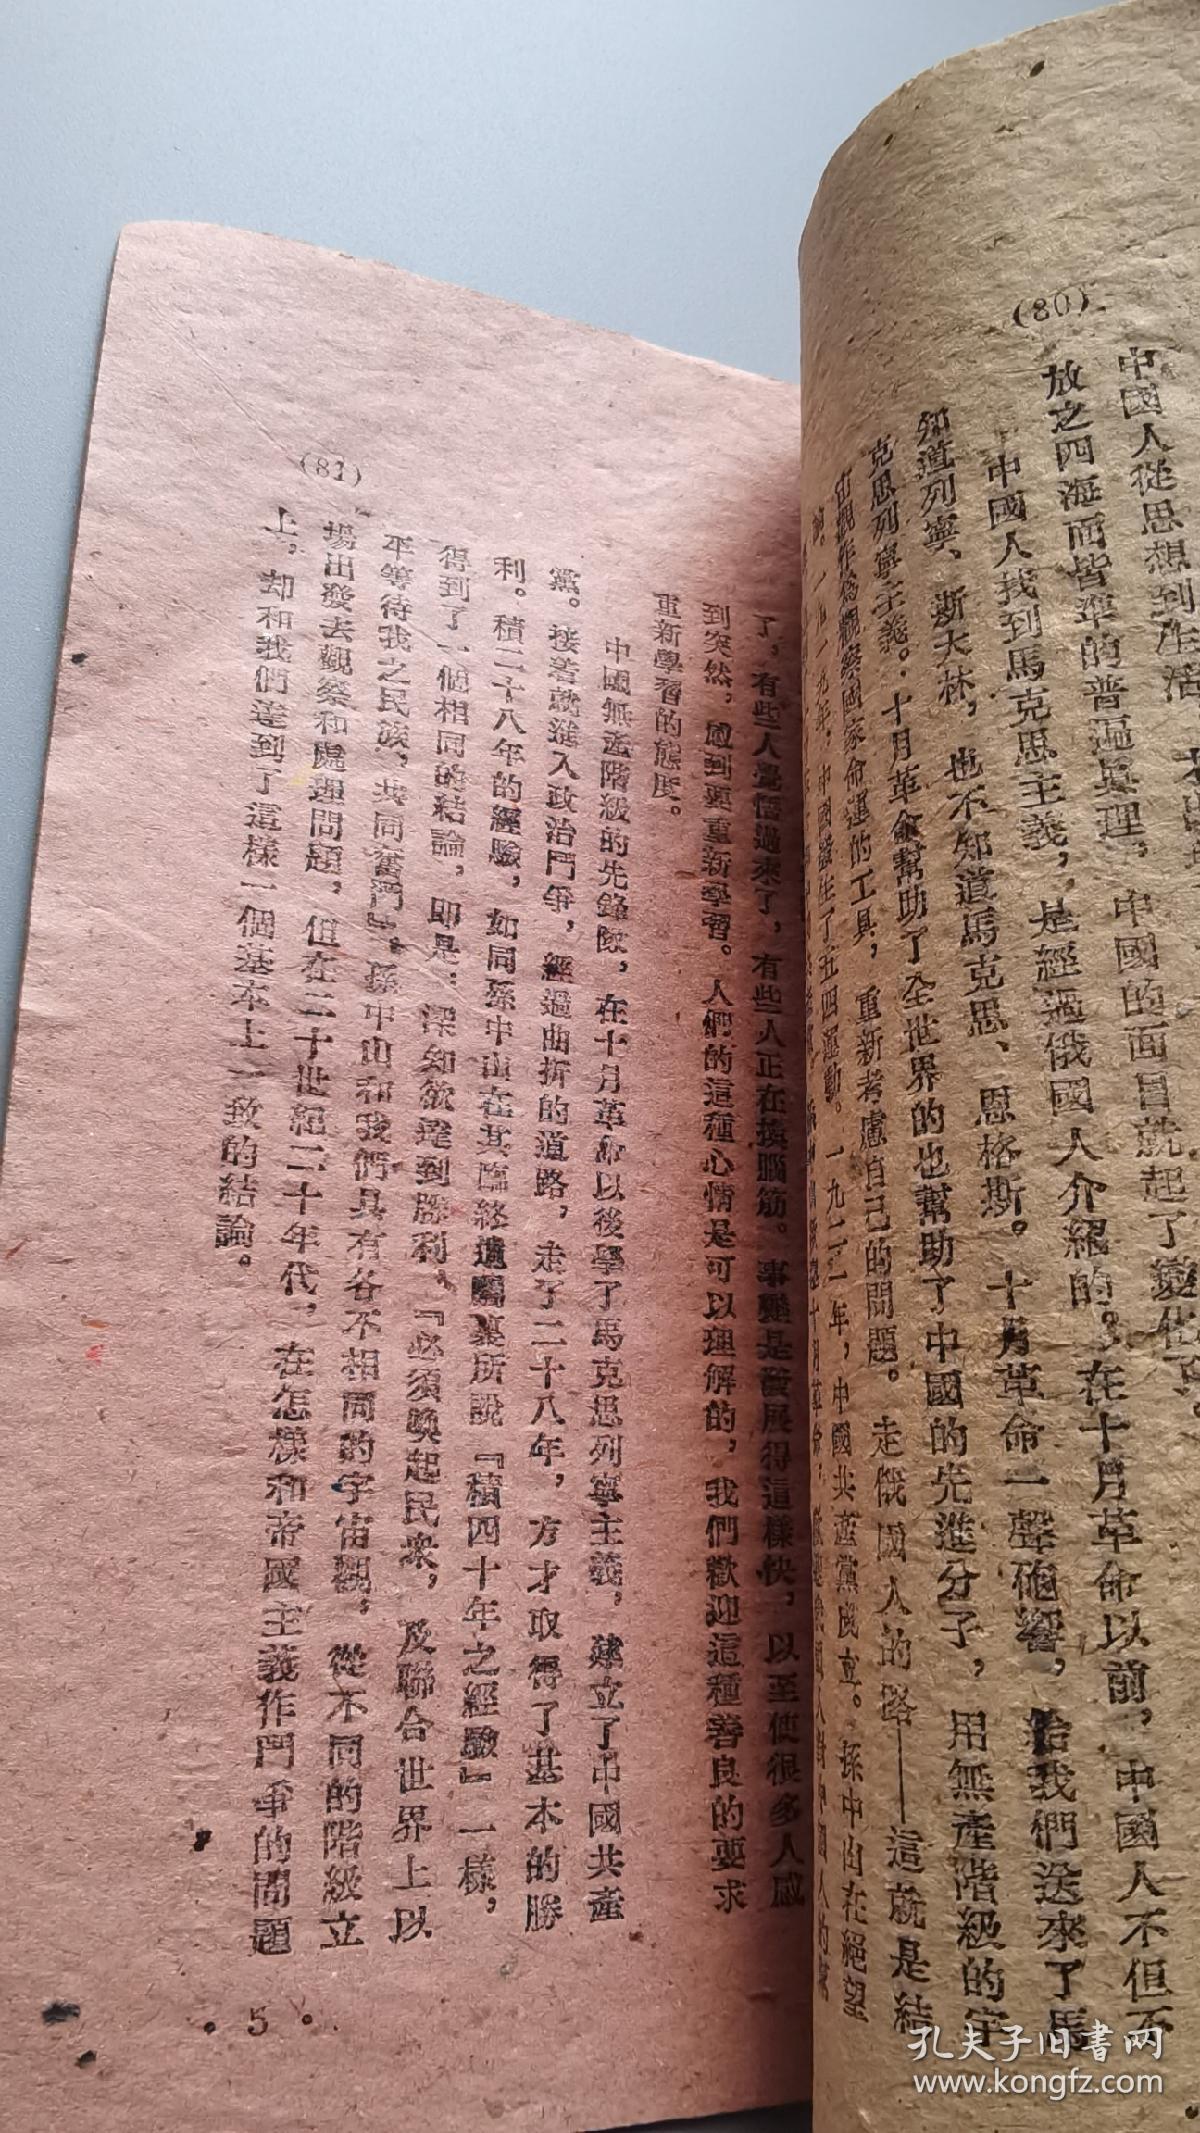 (80)
中國人從思想到生活
中國的面目就起了變化了。
放之四海而皆準的普遍眞理,
中國人找到馬克思主義,是經過俄國人介紹的。在十月革命以前,中國人不但不
知道列寧、斯大林,也不知道馬克思、恩格斯。十月革命一聲砲響,給我們送來了馬
克思列寧主義。十月革命幫助了全世界的也幫助了中國的先進分子,用無產階級的宇
宙觀作爲觀察國家命運的工具,重新考慮自己的問題。走俄國人的路——這就是結
論。一九一九年,中國發生了五四運動。一九二一年,中國共產黨成立。孫中山在絕望
(81)
了,有些人覺悟過來了,有些人正在換腦筋。事變是發展得這樣快,以至使很多人感
到突然,感到要重新學習。人們的這種心情是可以理解的,我們歡迎這種善良的要求
重新學習的態度。
中國無產階級的先鋒隊,在十月革命以後學了馬克思列寧主義,建立了中國共產
黨。接着就進入政治鬥爭,經過曲折的道路,走了二十八年,方才取得了基本的勝
利。積二十八年的經驗,如同孫中山在其臨終遺囑裏所說『積四十年之經驗』一樣,
得到了一個相同的結論,即是:深知欲達到勝利,『必須喚起民衆,及聯合世界上以
平等待我之民族,共同奮鬥』。孫中山和我們具有各不相同的宇宙觀,從不同的階級立
場出發去觀察和處理問題,但在二十世紀二十年代,在怎樣和帝國主義作鬥爭的問題
上,却和我們達到了這樣一個基本上一致的結論。
• 5 •
孔夫子旧書网
www.kongfz.com